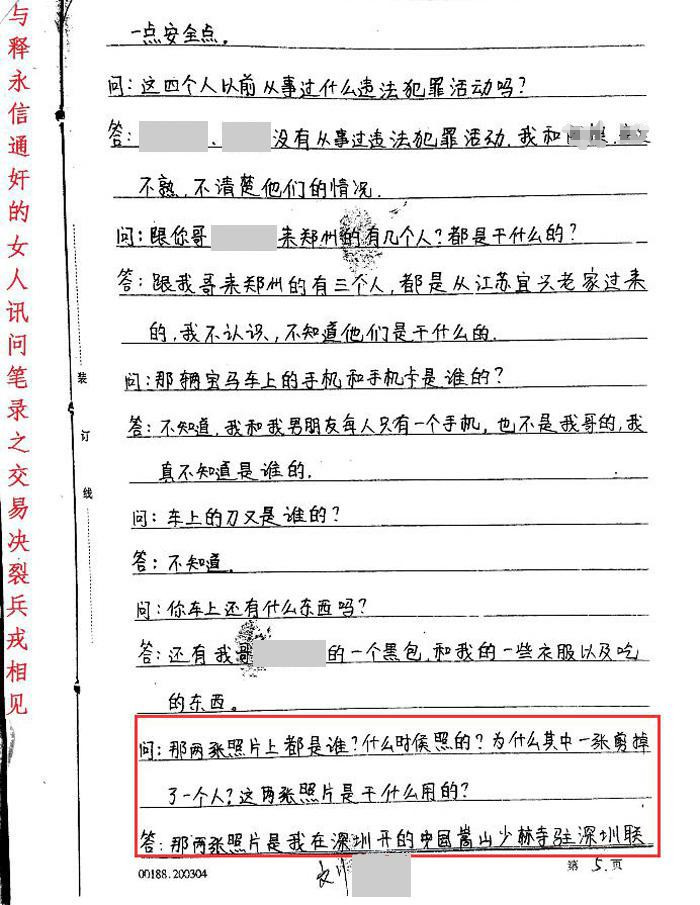 与释永信通奸的女人讯问笔录之交易决裂兵戎相见
一点安全点。
问:这四个人以前从事过什么违法犯罪活动吗?
答: 、 没有从事过违法犯罪活动,我和
不熟,不清楚他们的情况.
问:跟你哥 来郑州的有几个人?都是干什么的?
答:跟我哥来郑州的有三个人,都是从江苏宜兴老家过来
的,我不认识,不知道他们是干什么的.
问:那辆宝马车上的手机和手机卡是谁的?
答:不知道,我和我男朋友每人只有一个手机,也不是我哥的,我
真不知道是谁的.
问:车上的刀又是谁的?
答:不知道.
问:你车上还有什么东西吗?
答:还有我哥 的一个黑包,和我的一些衣服以及吃
的东西。
问:那两张照片上都是谁?什么时侯照的?为什么其中一张剪掉
了一个人?这两张照片是干什么用的?
答:那两张照片是我在深圳开的中国嵩山少林寺驻深圳联
装
订
线
00188.200304
第 5. 页